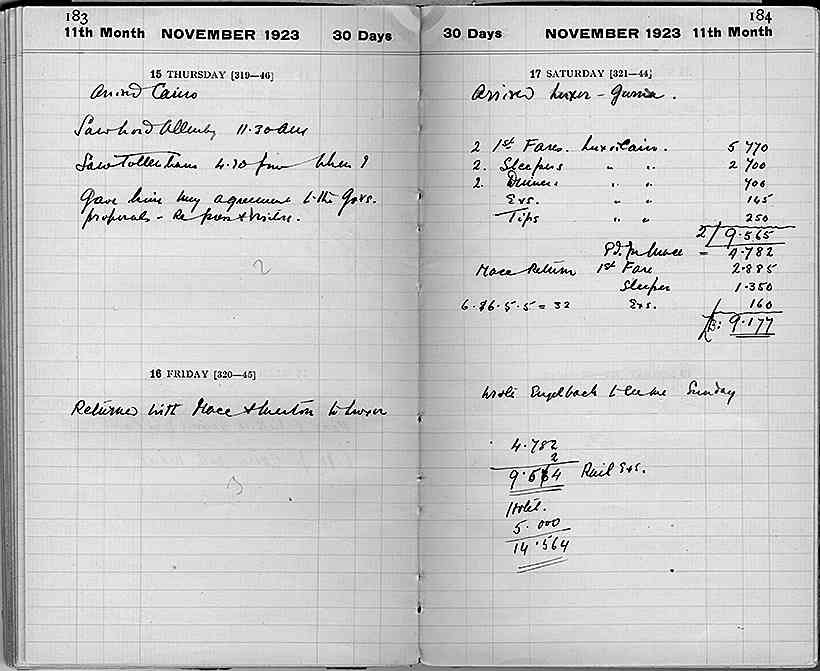 183
11th Month NOVEMBER 1923 30 Days
15 THURSDAY [319—46]
Arrived Cairo
Saw Lord Allenby 11.30 am
Saw Tottenham 4.30 pm when I
Gave him my agreement to the Govs.
proposals - Re press & visitors.
2
16 FRIDAY [320—45]
Returned with Mace & Merton to Luxor
3
184
30 Days NOVEMBER 1923 11th Month
17 SATURDAY [321—44]
Arrived Luxor - Gurna.
2 1st Fares. Luxor Cairo. 5 770
2. Sleepers " " 2 700
2. Dinners " " 700
Exs. " " 145
Tips " " 250
2/ 9.565
Pd. for Mace = 4.782
Mace Return 1st Fare 2.885
Sleeper 1.350
6.16.5.5 = 32 Exs. 160
9.177
Wrote Engelbach to see me Sunday
4.782
2
9.564 Rail Exs.
Hotel.
5.000
14.564